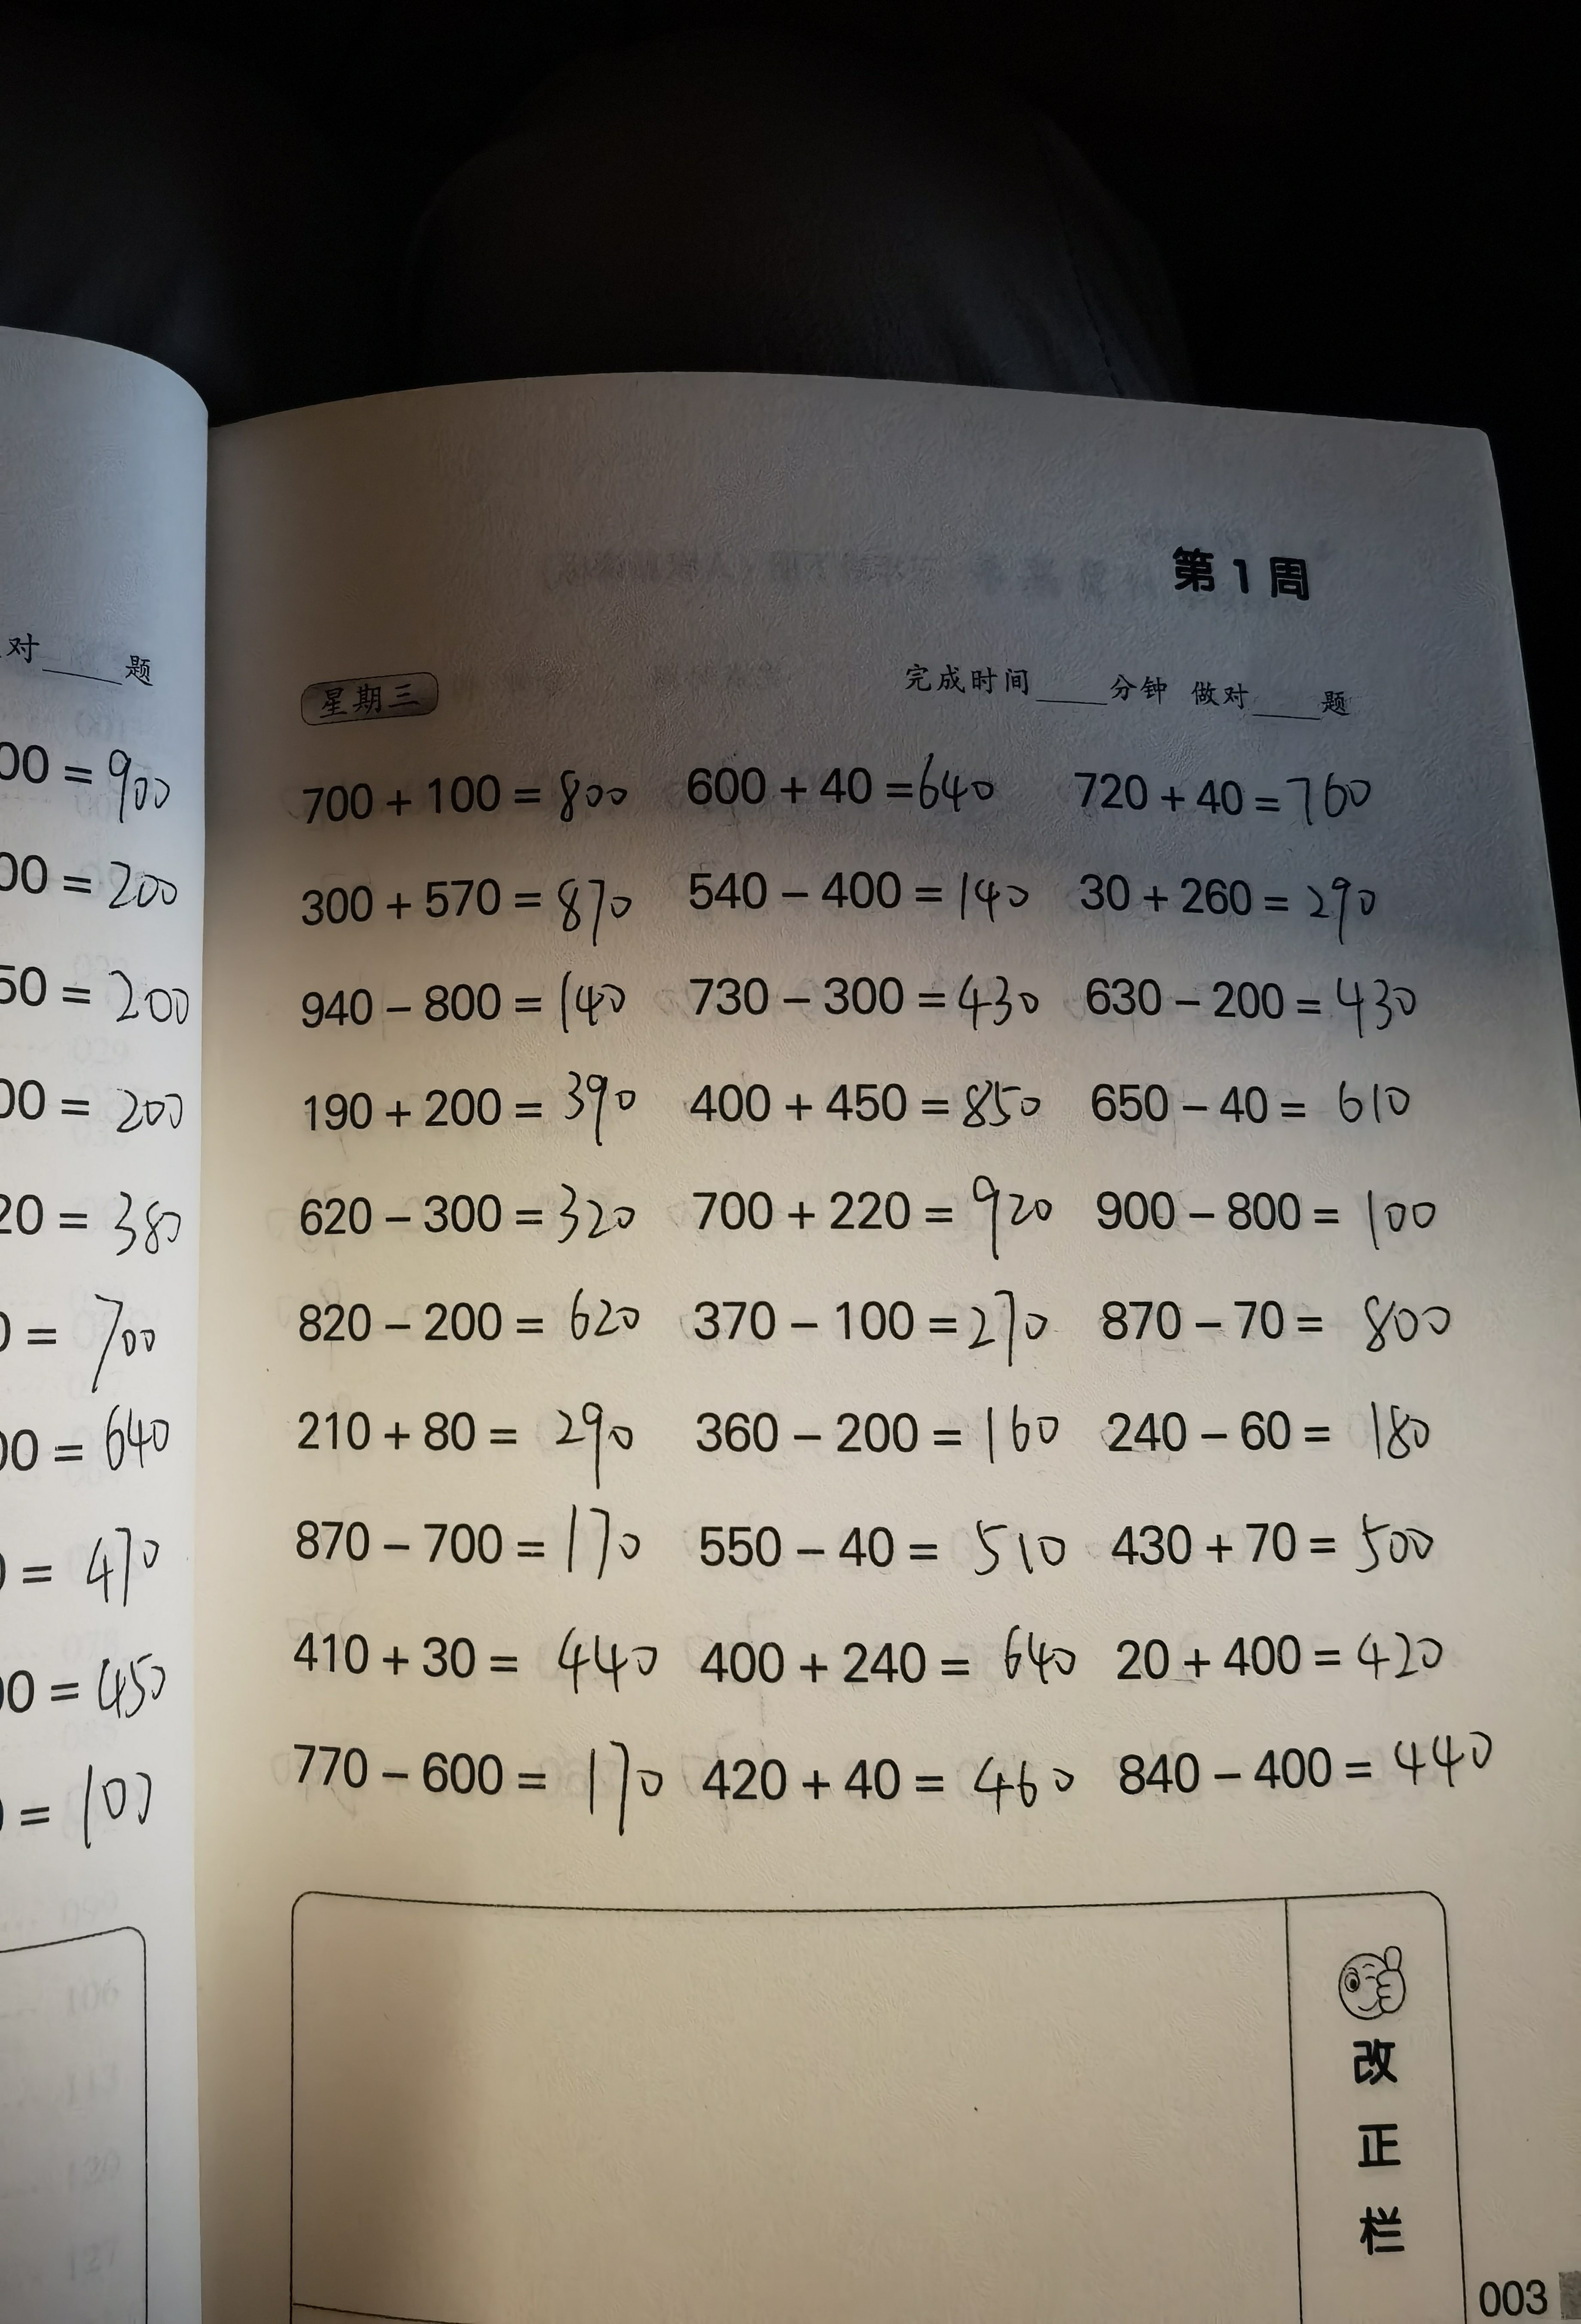 对____题
00 = 900
00 = 200
50 = 200
00 = 200
20 = 380
0 = 700
00 = 640
0 = 470
00 = 450
0 = 100
第1周
星期三 完成时间____分钟 做对____题
700 + 100 = 800 600 + 40 = 640 720 + 40 = 760
300 + 570 = 870 540 - 400 = 140 30 + 260 = 290
940 - 800 = 140 730 - 300 = 430 630 - 200 = 430
190 + 200 = 390 400 + 450 = 850 650 - 40 = 610
620 - 300 = 320 700 + 220 = 920 900 - 800 = 100
820 - 200 = 620 370 - 100 = 270 870 - 70 = 800
210 + 80 = 290 360 - 200 = 160 240 - 60 = 180
870 - 700 = 170 550 - 40 = 510 430 + 70 = 500
410 + 30 = 440 400 + 240 = 640 20 + 400 = 420
770 - 600 = 170 420 + 40 = 460 840 - 400 = 440
改正栏
003